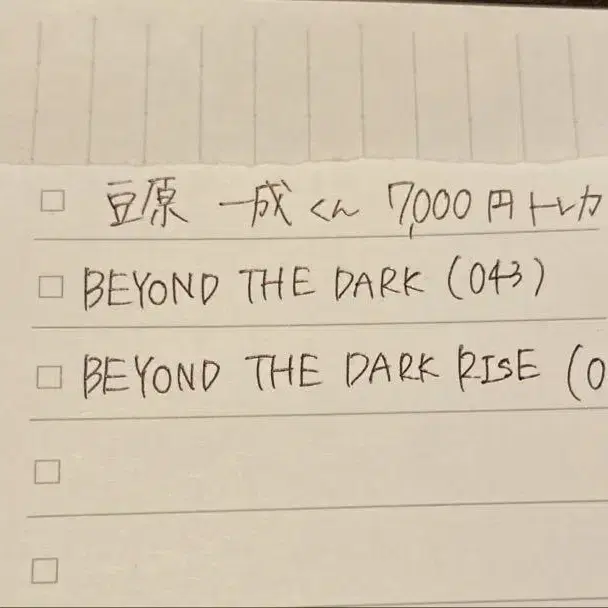 豆原 一成くん 7,000円トレカ
BEYOND THE DARK (043)
BEYOND THE DARK RISE (0